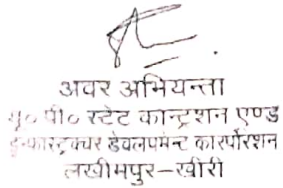 अवर अभियन्ता
यू० पी० स्टेट कान्ट्रशन एण्ड
इन्फ्रास्ट्रक्चर डेवलपमेन्ट कारर्पोरशन
लखीमपुर-खीरी